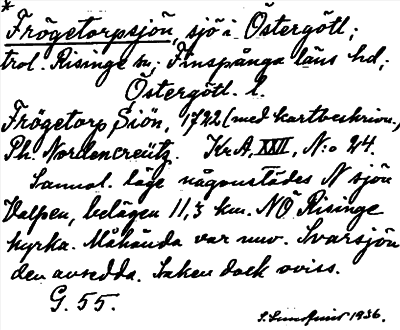 *
Frögetorpsjön, sjö i Östergötl;
trol. Risinge sn; Finspånga läns hd;
Östergötl. l.
Frögetorp Siön, 1722 (med kartbeskrivn.)
Ph. Nordencreütz. Kr.A, XXII, N:o 24.
Sannol. läge någonstädes N sjön
Valpen, belägen 11,3 km. NÖ Risinge
kyrka. Måhända var nuv. Svarsjön
den avsedda. Saken dock oviss.
G. 55.
S. Sundqvist 1936.